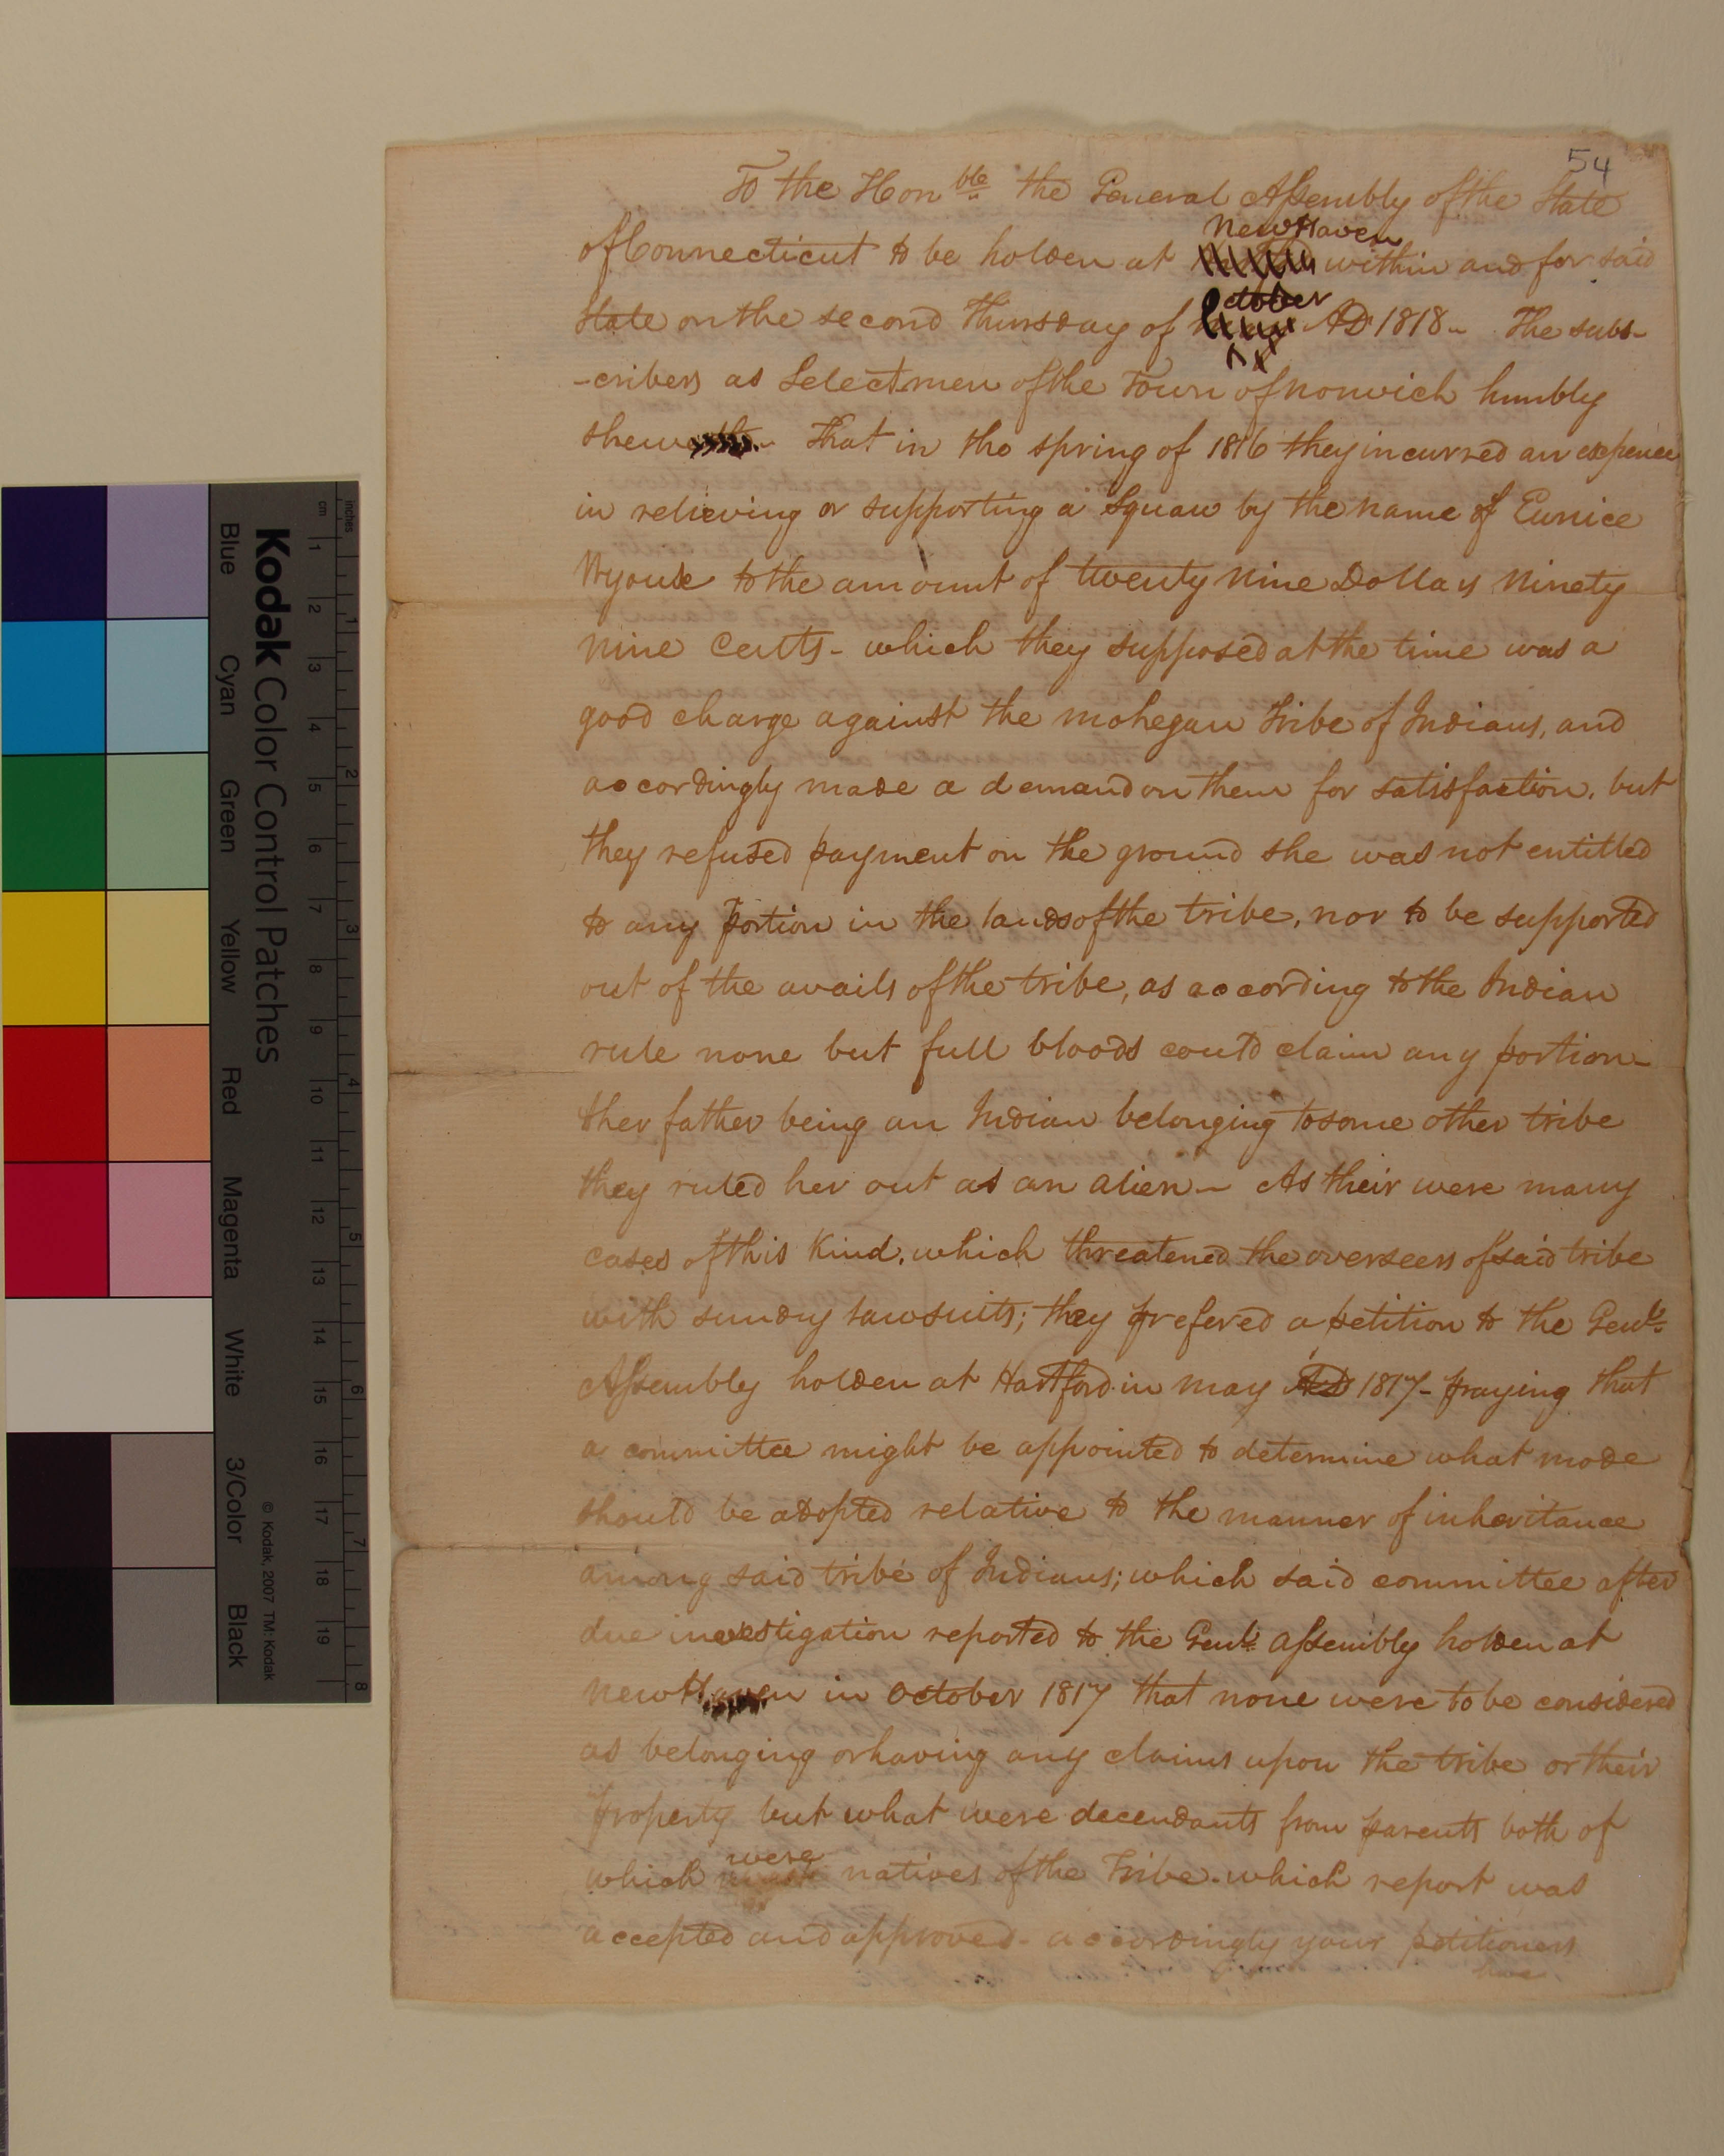 54
To the Honble the General Assembly of the State
New Haven
of Connecticut to be holden at within and for said
October
State on the second Thursday of AD 1818 - The subs-
-cribers as Selectmen of the Town of Norwich humbly
shew That in the spring of 1816 they incurred an expence
in relieving or supporting a Squaw by the name of Eunice
to the amount of twenty nine Dollars ninety
nine Cents - which they supposed at the time was a
good charge against the mohegan tribe of Indians, and
accordingly made a demand on them for satisfaction, but
they refused payment on the ground she was not entitled
to any portion in the lands of the tribe, nor to be supported
out of the avails of the tribe, as according to the Indian
rule none but full bloods could claim any portion -
& her father being an Indian belonging to some other tribe
they ruled her out as an alien - As their were many
cases of this kind, which threatened the overseers of said tribe
with sundry lawsuits; they prefered a petition to the Genl.
Assembly holden at Hartford in may AD 1817 - praying that
a committee might be appointed to determine what mode
should be adopted relative to the manner of inheritance
among said tribe of Indians; which said committee after
due investigation reported to the Genl. assembly holden at
New Haven in October 1817 that none were to be considered
as belonging or having any claims upon the tribe or their
property but what were decendants from parents both of
were
which natives of the Tribe. which report was
accepted and approved - accordingly your petitioners
have
Kodak Color Control Patches
Blue Cyan Green Yellow Red Magenta White 3/Color Black
© Kodak, 2007 TM: Kodak
inches 1 2 3 4 5 6 7 8
cm 1 2 3 4 5 6 7 8 9 10 11 12 13 14 15 16 17 18 19